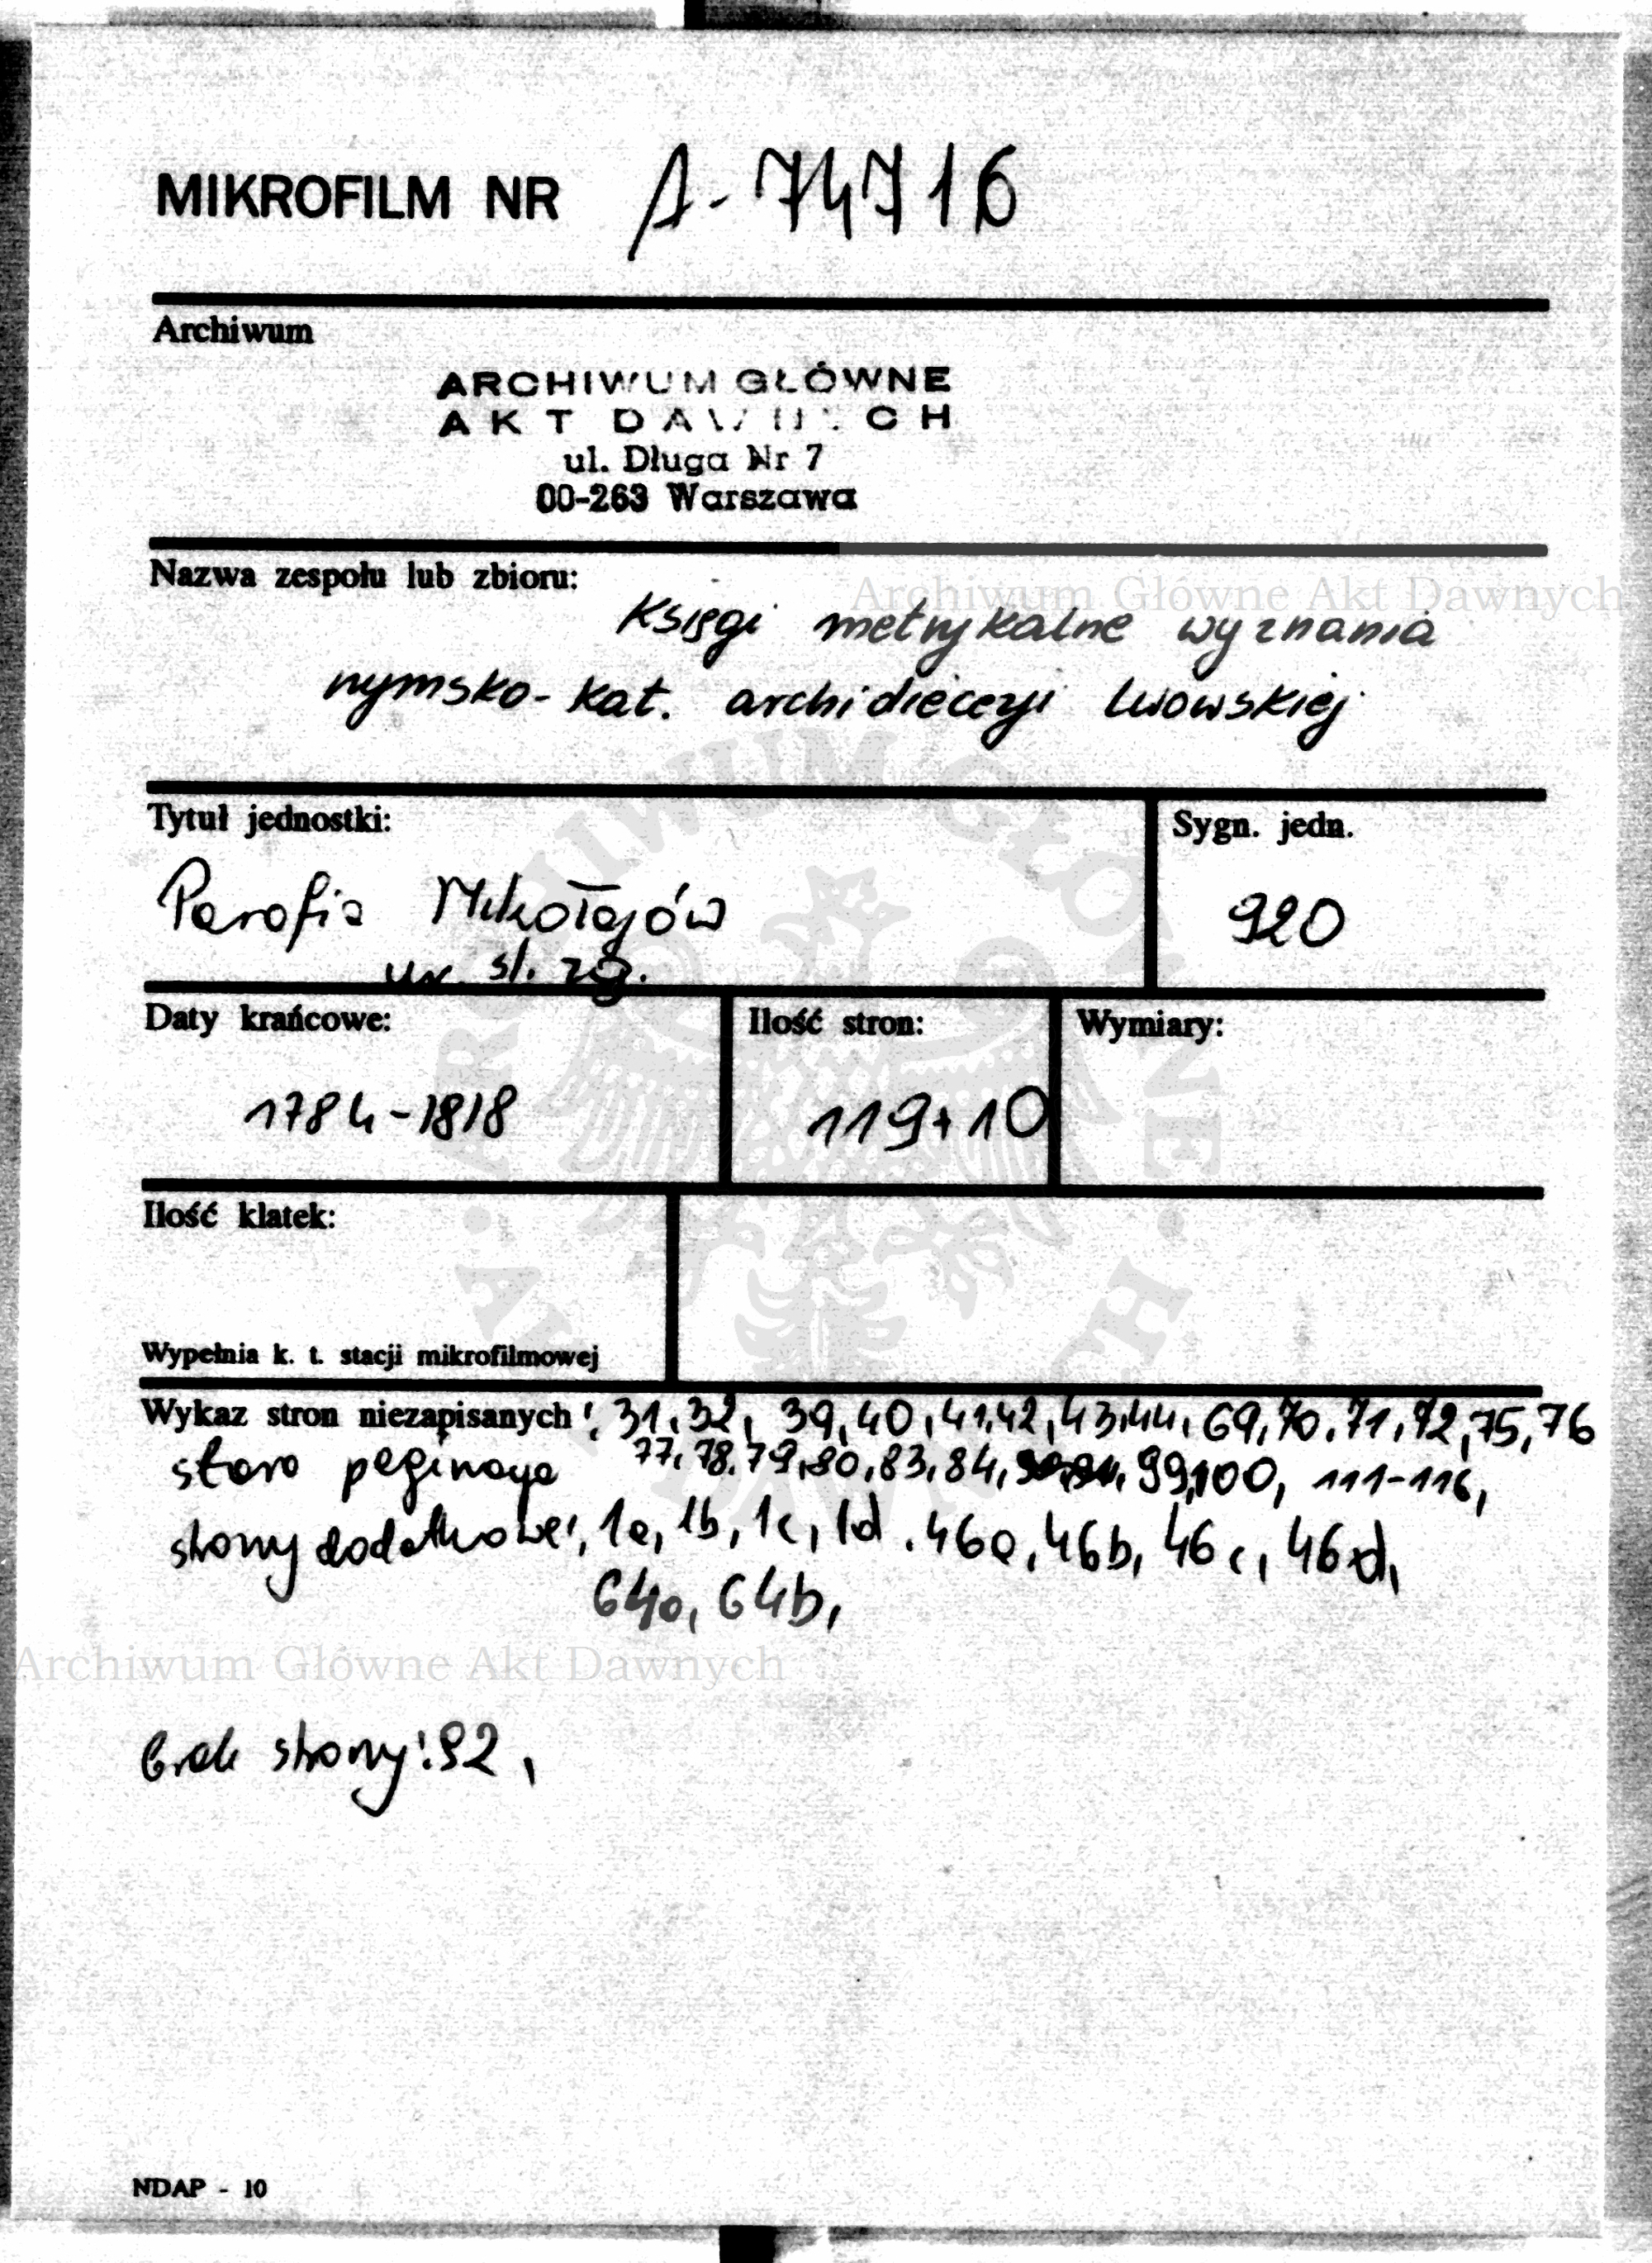 MIKROFILM NR A-74716
Archiwum
ARCHIWUM GŁÓWNE
AKT DAWNYCH
ul. Długa Nr 7
00-263 Warszawa
Nazwa zespołu lub zbioru:
Archiwum Głowne Akt Dawnych
Księgi metrykalne wyznania
rzymsko-kat. archidiecezji Lwowskiej
Tytuł jednostki:
Sygn. jedn.
Parafia Mikołajów
920
ur. śl. zg.
Daty krańcowe:
Ilość stron:
Wymiary:
1784-1818
119+10
Ilość klatek:
Wypełnia k. t. stacji mikrofilmowej
Wykaz stron niezapisanych: 31, 32, 39, 40, 41, 42, 43, 44, 69, 70, 71, 72, 75, 76
stara paginacja 77, 78, 79, 80, 83, 84, 99, 100, 111-116,
strony dodatkowe: 1a, 1b, 1c, 1d, 46a, 46b, 46c, 46d,
64a, 64b,
Archiwum Głowne Akt Dawnych
brak strony: 92,
NDAP - 10
ARCHIWUM GŁÓWNE · AKT DAWNYCH ·